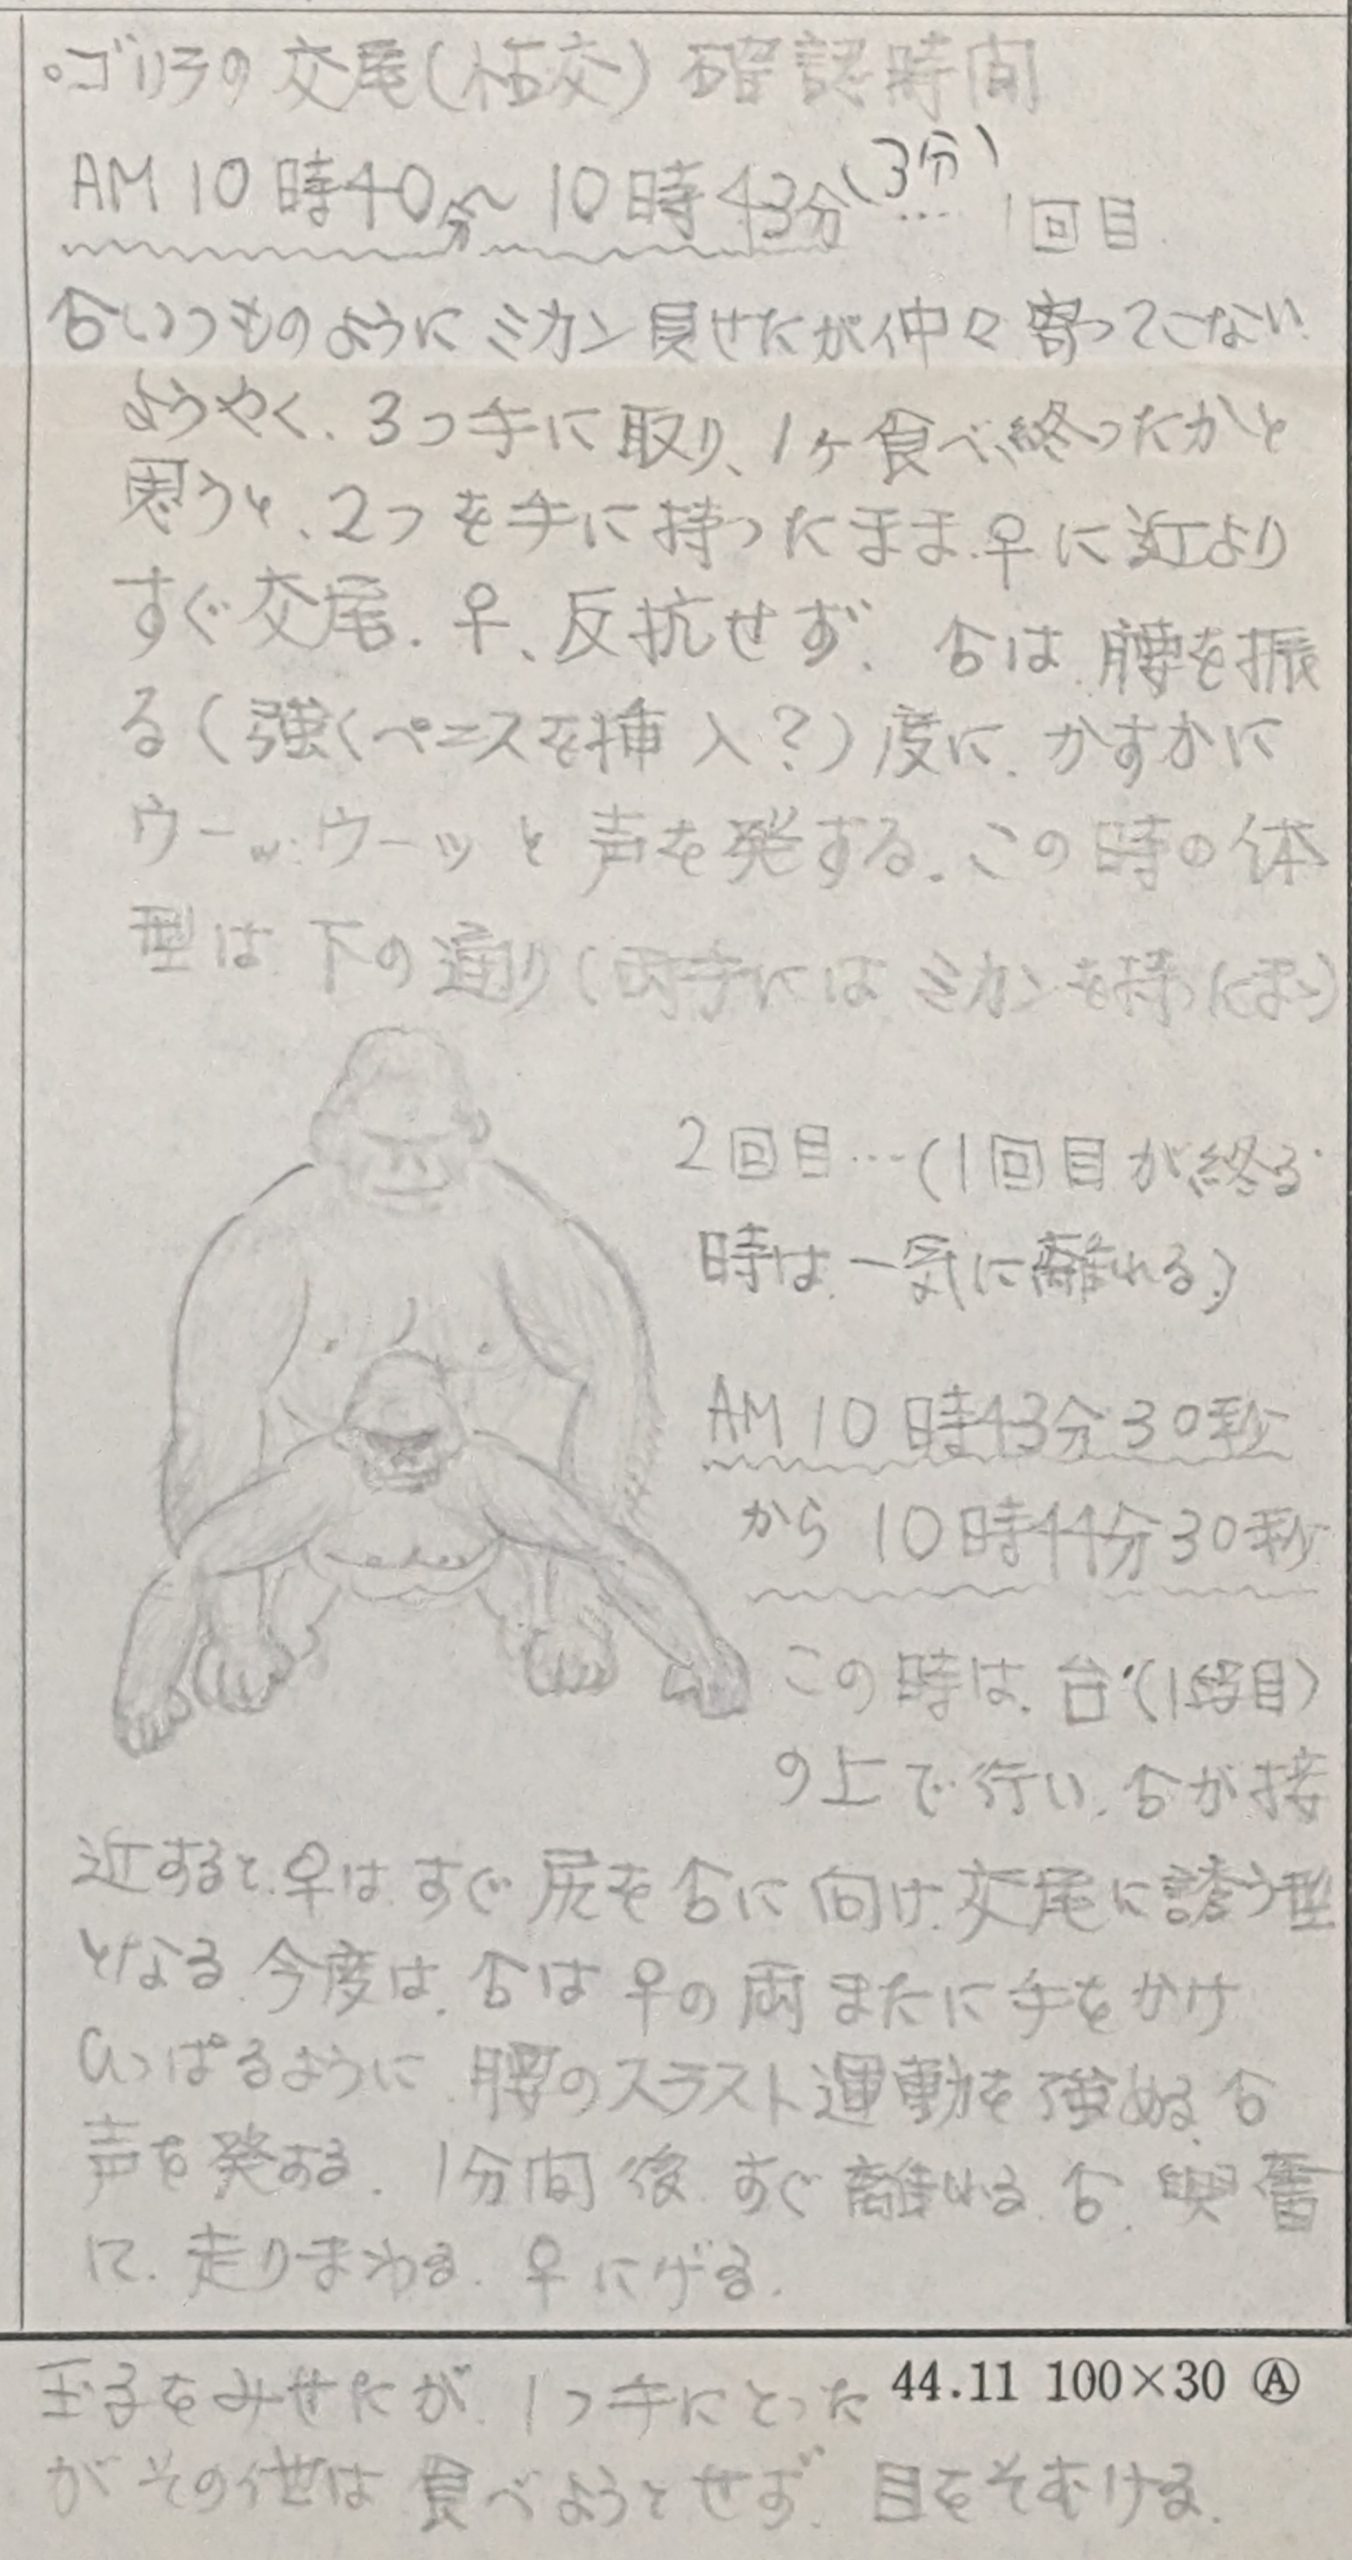 ○ゴリラの交尾(性交)確認時間
AM10時40分〜10時43分(3分)…1回目
♂いつものようにミカン見せたが仲々寄ってこない
ようやく、3つ手に取り、1ヶ食べ終ったかと
思うと、2つを手に持ったまま♀に近より
すぐ交尾.♀、反抗せず、♂は腰を振
る(強くペニスを挿入?)度に、かすかに
ウーッ、ウーッと声を発する.この時の体
型は下の通り(両手にはミカンを持ったまゝ)
2回目…(1回目が終る
時は一気に離れる.)
AM10時43分30秒
から10時44分30秒
この時は、台(1段目)
の上で行い、♂が接
近すると、♀はすぐ尻を♂に向け、交尾に誘う型
となる.今度は、♂は♀の両またに手をかけ
ひっぱるように腰のスラスト運動を強める、♂
声を発する.1分間後すぐ離れる.♂、興奮
に、走りまわる.♀にげる.
玉子をみせたが、1つ手にとった
がその他は食べようとせず、目をそむける.
44.11 100×30 Ⓐ